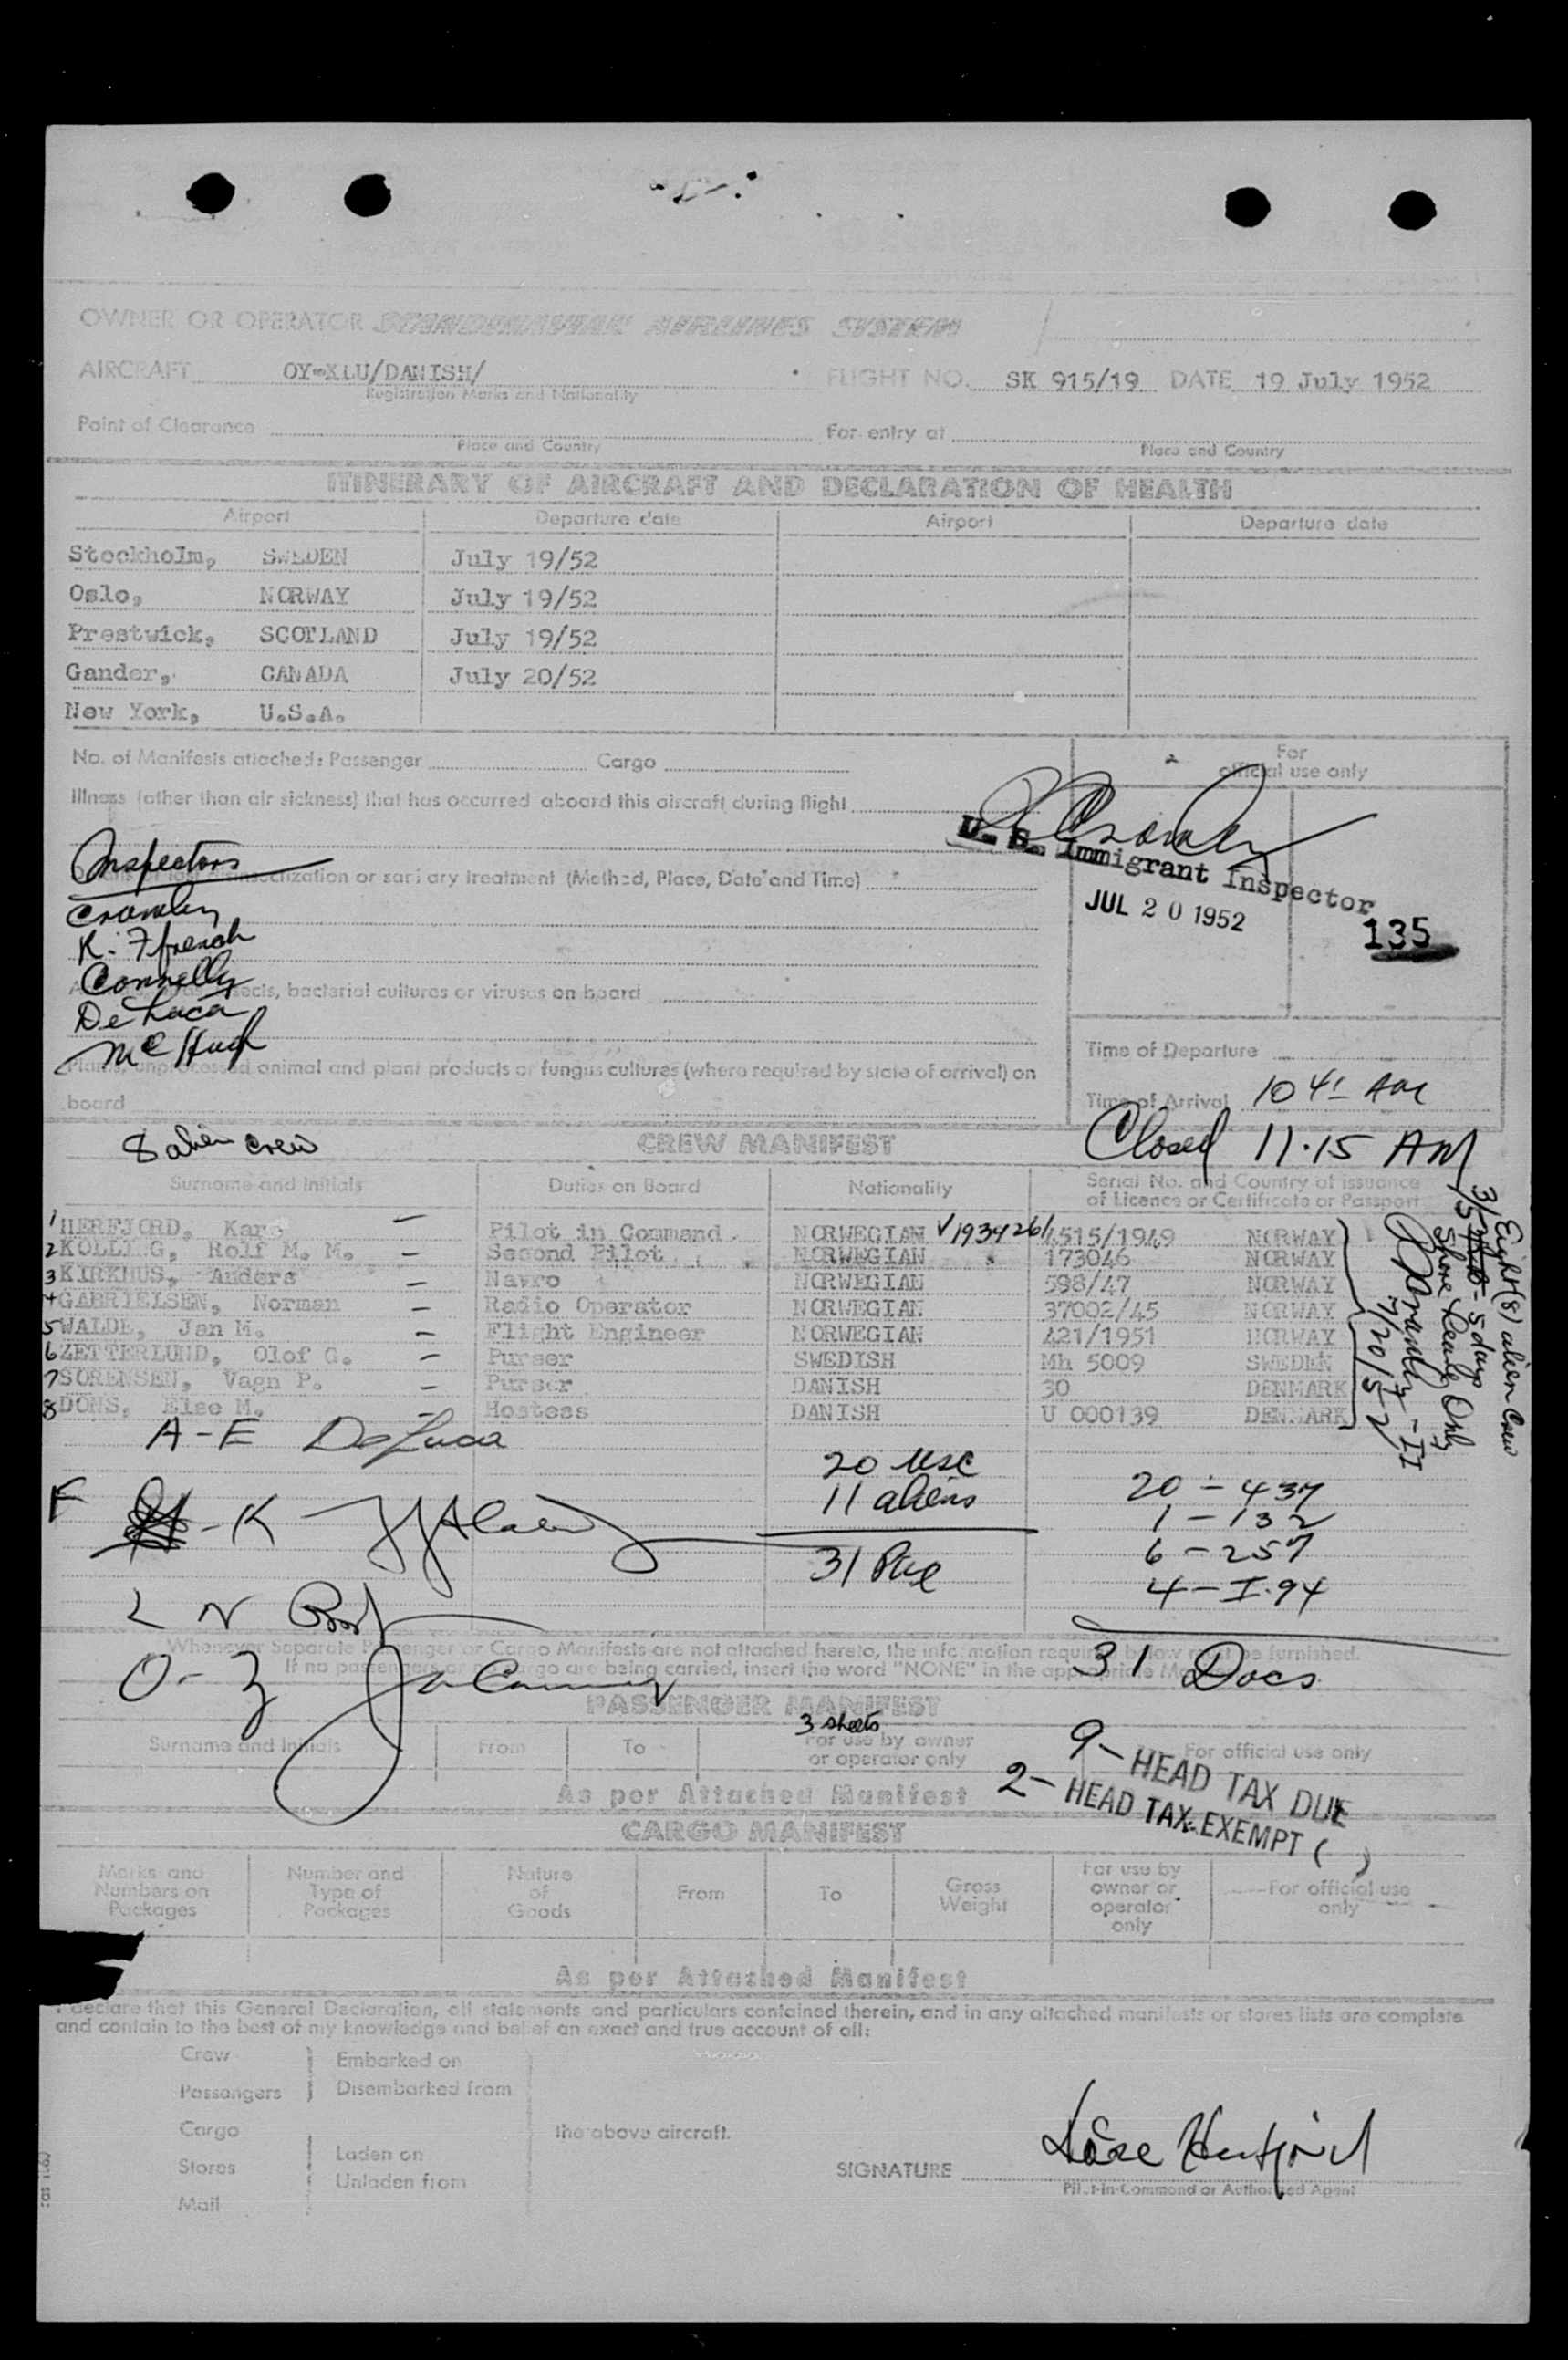 OWNER OR OPERATOR SCANDINAVIAN AIRLINES SYSTEM
AIRCRAFT OY-KLU/DANISH/ FLIGHT NO. SK 915/19 DATE 19 July 1952
Registration Marks and Nationality
Point of Clearance For entry at
Place and Country Place and Country
ITINERARY OF AIRCRAFT AND DECLARATION OF HEALTH
Airport Departure date Airport Departure date
Stockholm, SWEDEN July 19/52
Oslo, NORWAY July 19/52
Prestwick, SCOTLAND July 19/52
Gander, CANADA July 20/52
New York, U.S.A.
No. of Manifests attached: Passenger Cargo
For
official use only
Illness (other than air sickness) that has occurred aboard this aircraft during flight
U. S. Immigrant Inspector
JUL 20 1952
135
Inspectors
disinsectization or sanitary treatment (Method, Place, Date and Time)
Cromley
K. Ffrench
Connelly
insects, bacterial cultures or viruses on board
De Luca
McHugh
Plants, unprocessed animal and plant products or fungus cultures (where required by state of arrival) on
board
Time of Departure
Time of Arrival 10 41 AM
Closed 11.15 AM
8 alien crew
CREW MANIFEST
Surname and Initials Duties on Board Nationality Serial No. and Country of issuance
of Licence or Certificate or Passport
1 HERFJORD, Kar Pilot in Command NORWEGIAN V1934261 1515/1949 NORWAY
2 KOLLING, Rolf M. M. Second Pilot NORWEGIAN 173046 NORWAY
3 KIRKHUS, Anders Navro NORWEGIAN 598/47 NORWAY
4 GABRIELSEN, Norman Radio Operator NORWEGIAN 37002/45 NORWAY
5 WALDE, Jan M. Flight Engineer NORWEGIAN 421/1951 NORWAY
6 ZETTERLUND, Olof G. Purser SWEDISH Mh 5009 SWEDEN
7 SORENSEN, Vagn P. Purser DANISH 30 DENMARK
8 DONS, Else M. Hostess DANISH U 000139 DENMARK
Eight (8) alien crew
3/5 - 5 days
Shore Leave Only
Cromley - II
7/20/52
A-E DeLuca
20 USC
11 aliens
31 Pax
F - K
L N
O - Z
20 - 437
1 - 132
6 - 257
4 - I-94
31 Docs
Whenever Separate Passenger or Cargo Manifests are not attached hereto, the information required below must be furnished.
If no passengers or no cargo are being carried, insert the word "NONE" in the appropriate
PASSENGER MANIFEST
3 sheets
Surname and Initials From To For use by owner
or operator only For official use only
As per Attached Manifest
9- HEAD TAX DUE
2- HEAD TAX EXEMPT ( )
CARGO MANIFEST
Marks and
Numbers on
Packages
Number and
Type of
Packages
Nature
of
Goods
From
To
Gross
Weight
For use by
owner or
operator
only
For official use
only
As per Attached Manifest
I declare that this General Declaration, all statements and particulars contained therein, and in any attached manifests or stores lists are complete
and contain to the best of my knowledge and belief an exact and true account of all:
Crew
Passengers
Embarked on
Disembarked from
Cargo
Stores
Mail
Laden on
Unladen from
the above aircraft.
SIGNATURE Kåre Herfjord
Pilot-in-Command or Authorized Agent